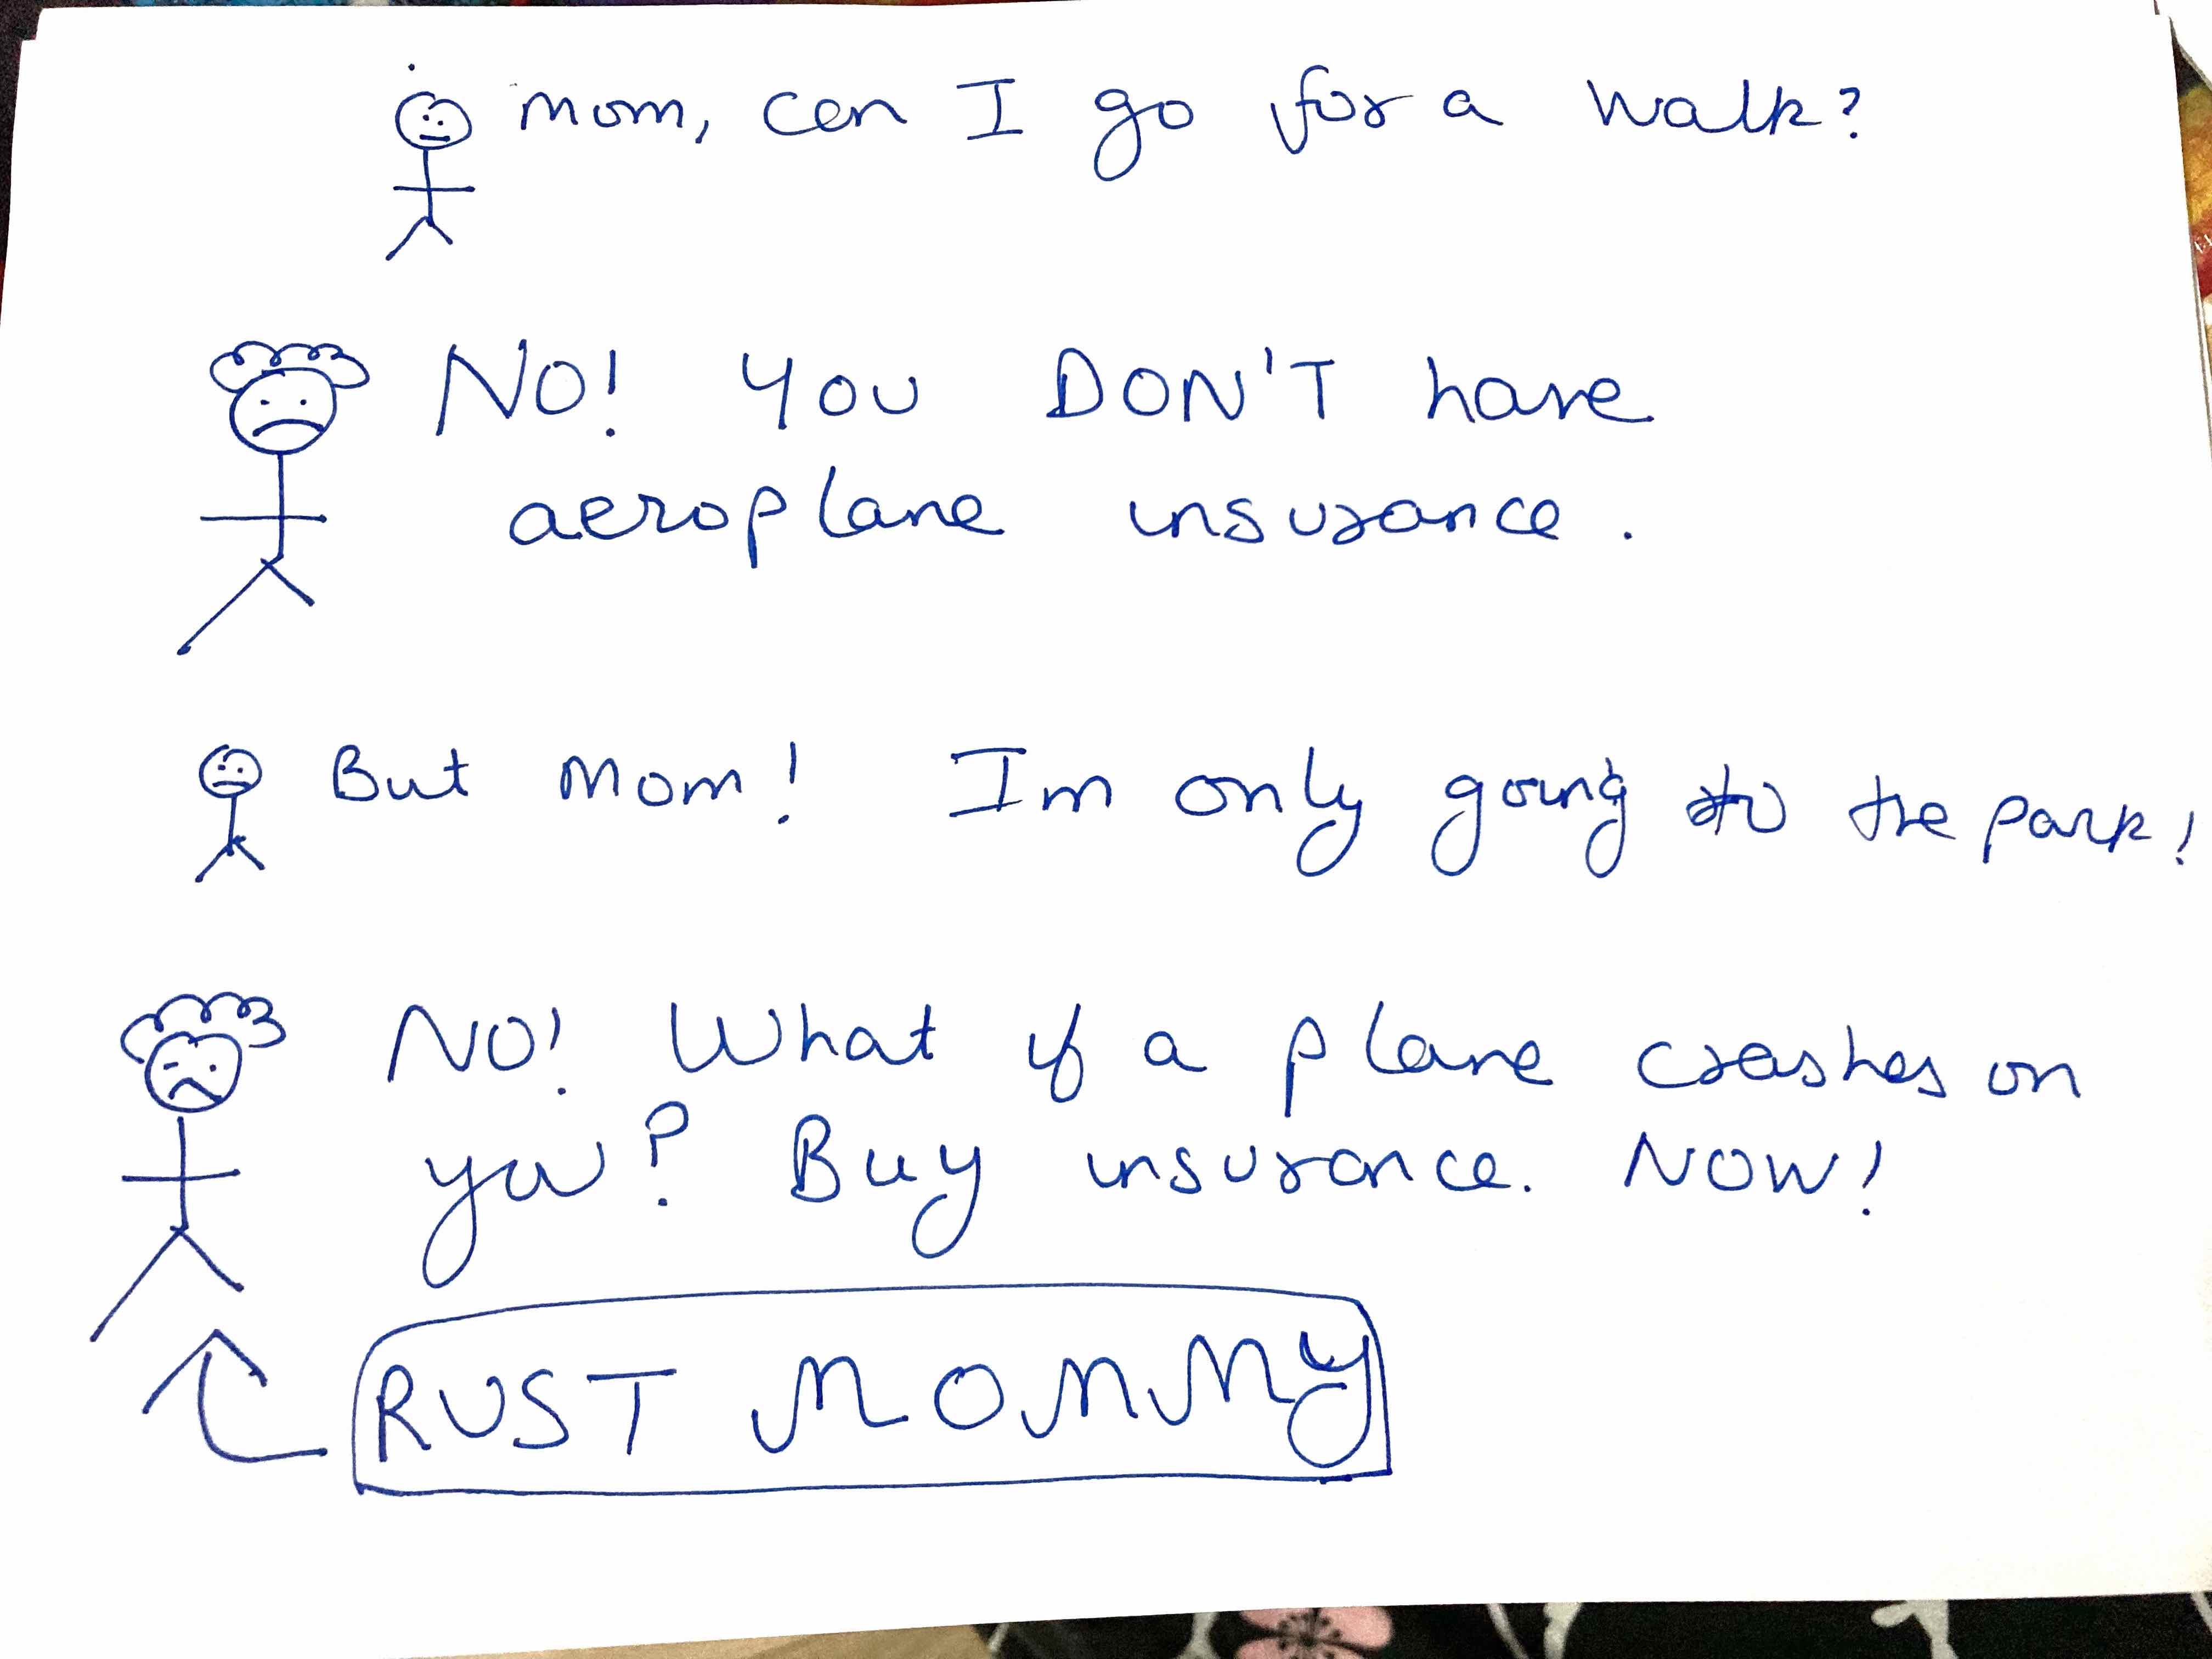 Mom, can I go for a walk?
NO! You DON'T have
aeroplane insurance.
But Mom! Im only going to the park!
NO! What if a plane crashes on
you? Buy insurance. NOW!
RUST MOMMY